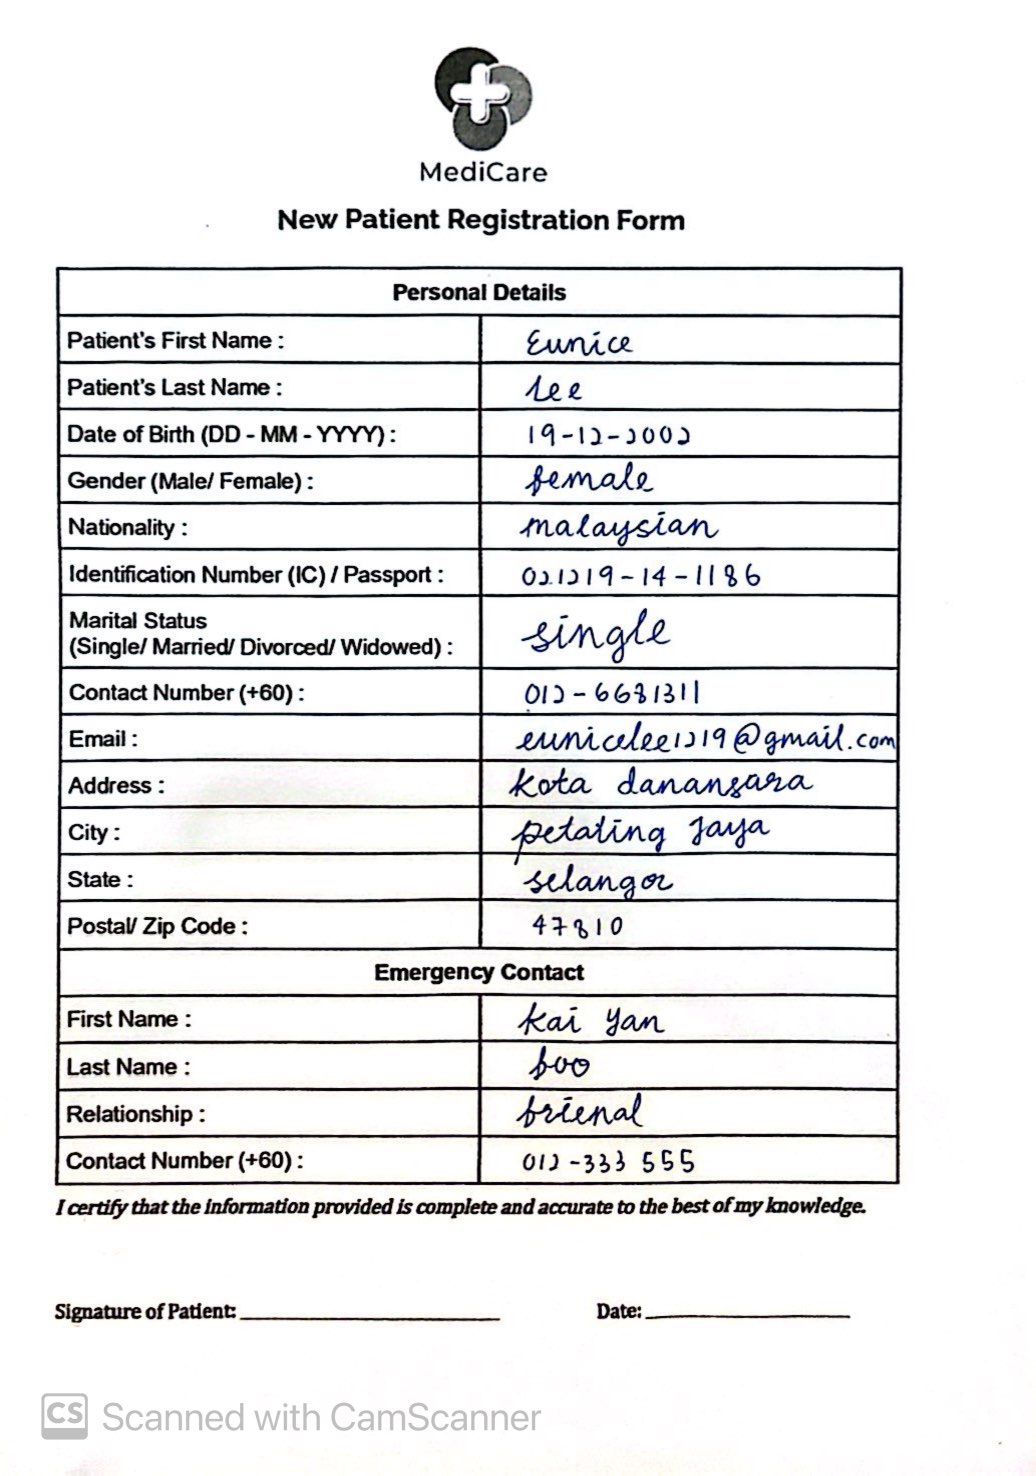 MediCare
New Patient Registration Form
Personal Details
Patient's First Name : Eunice
Patient's Last Name : Lee
Date of Birth (DD - MM - YYYY) : 19-12-2002
Gender (Male/ Female) : female
Nationality : malaysian
Identification Number (IC) / Passport : 021219-14-1186
Marital Status
(Single/ Married/ Divorced/ Widowed) : single
Contact Number (+60) : 012-6681311
Email : eunicelee1219@gmail.com
Address : kota
City : petaling Jaya
State : selangor
Postal/ Zip Code : 47810
Emergency Contact
First Name : kai yan
Last Name :
Relationship : friend
Contact Number (+60) : 012-333 555
I certify that the information provided is complete and accurate to the best of my knowledge.
Signature of Patient: Date:
CS Scanned with CamScanner